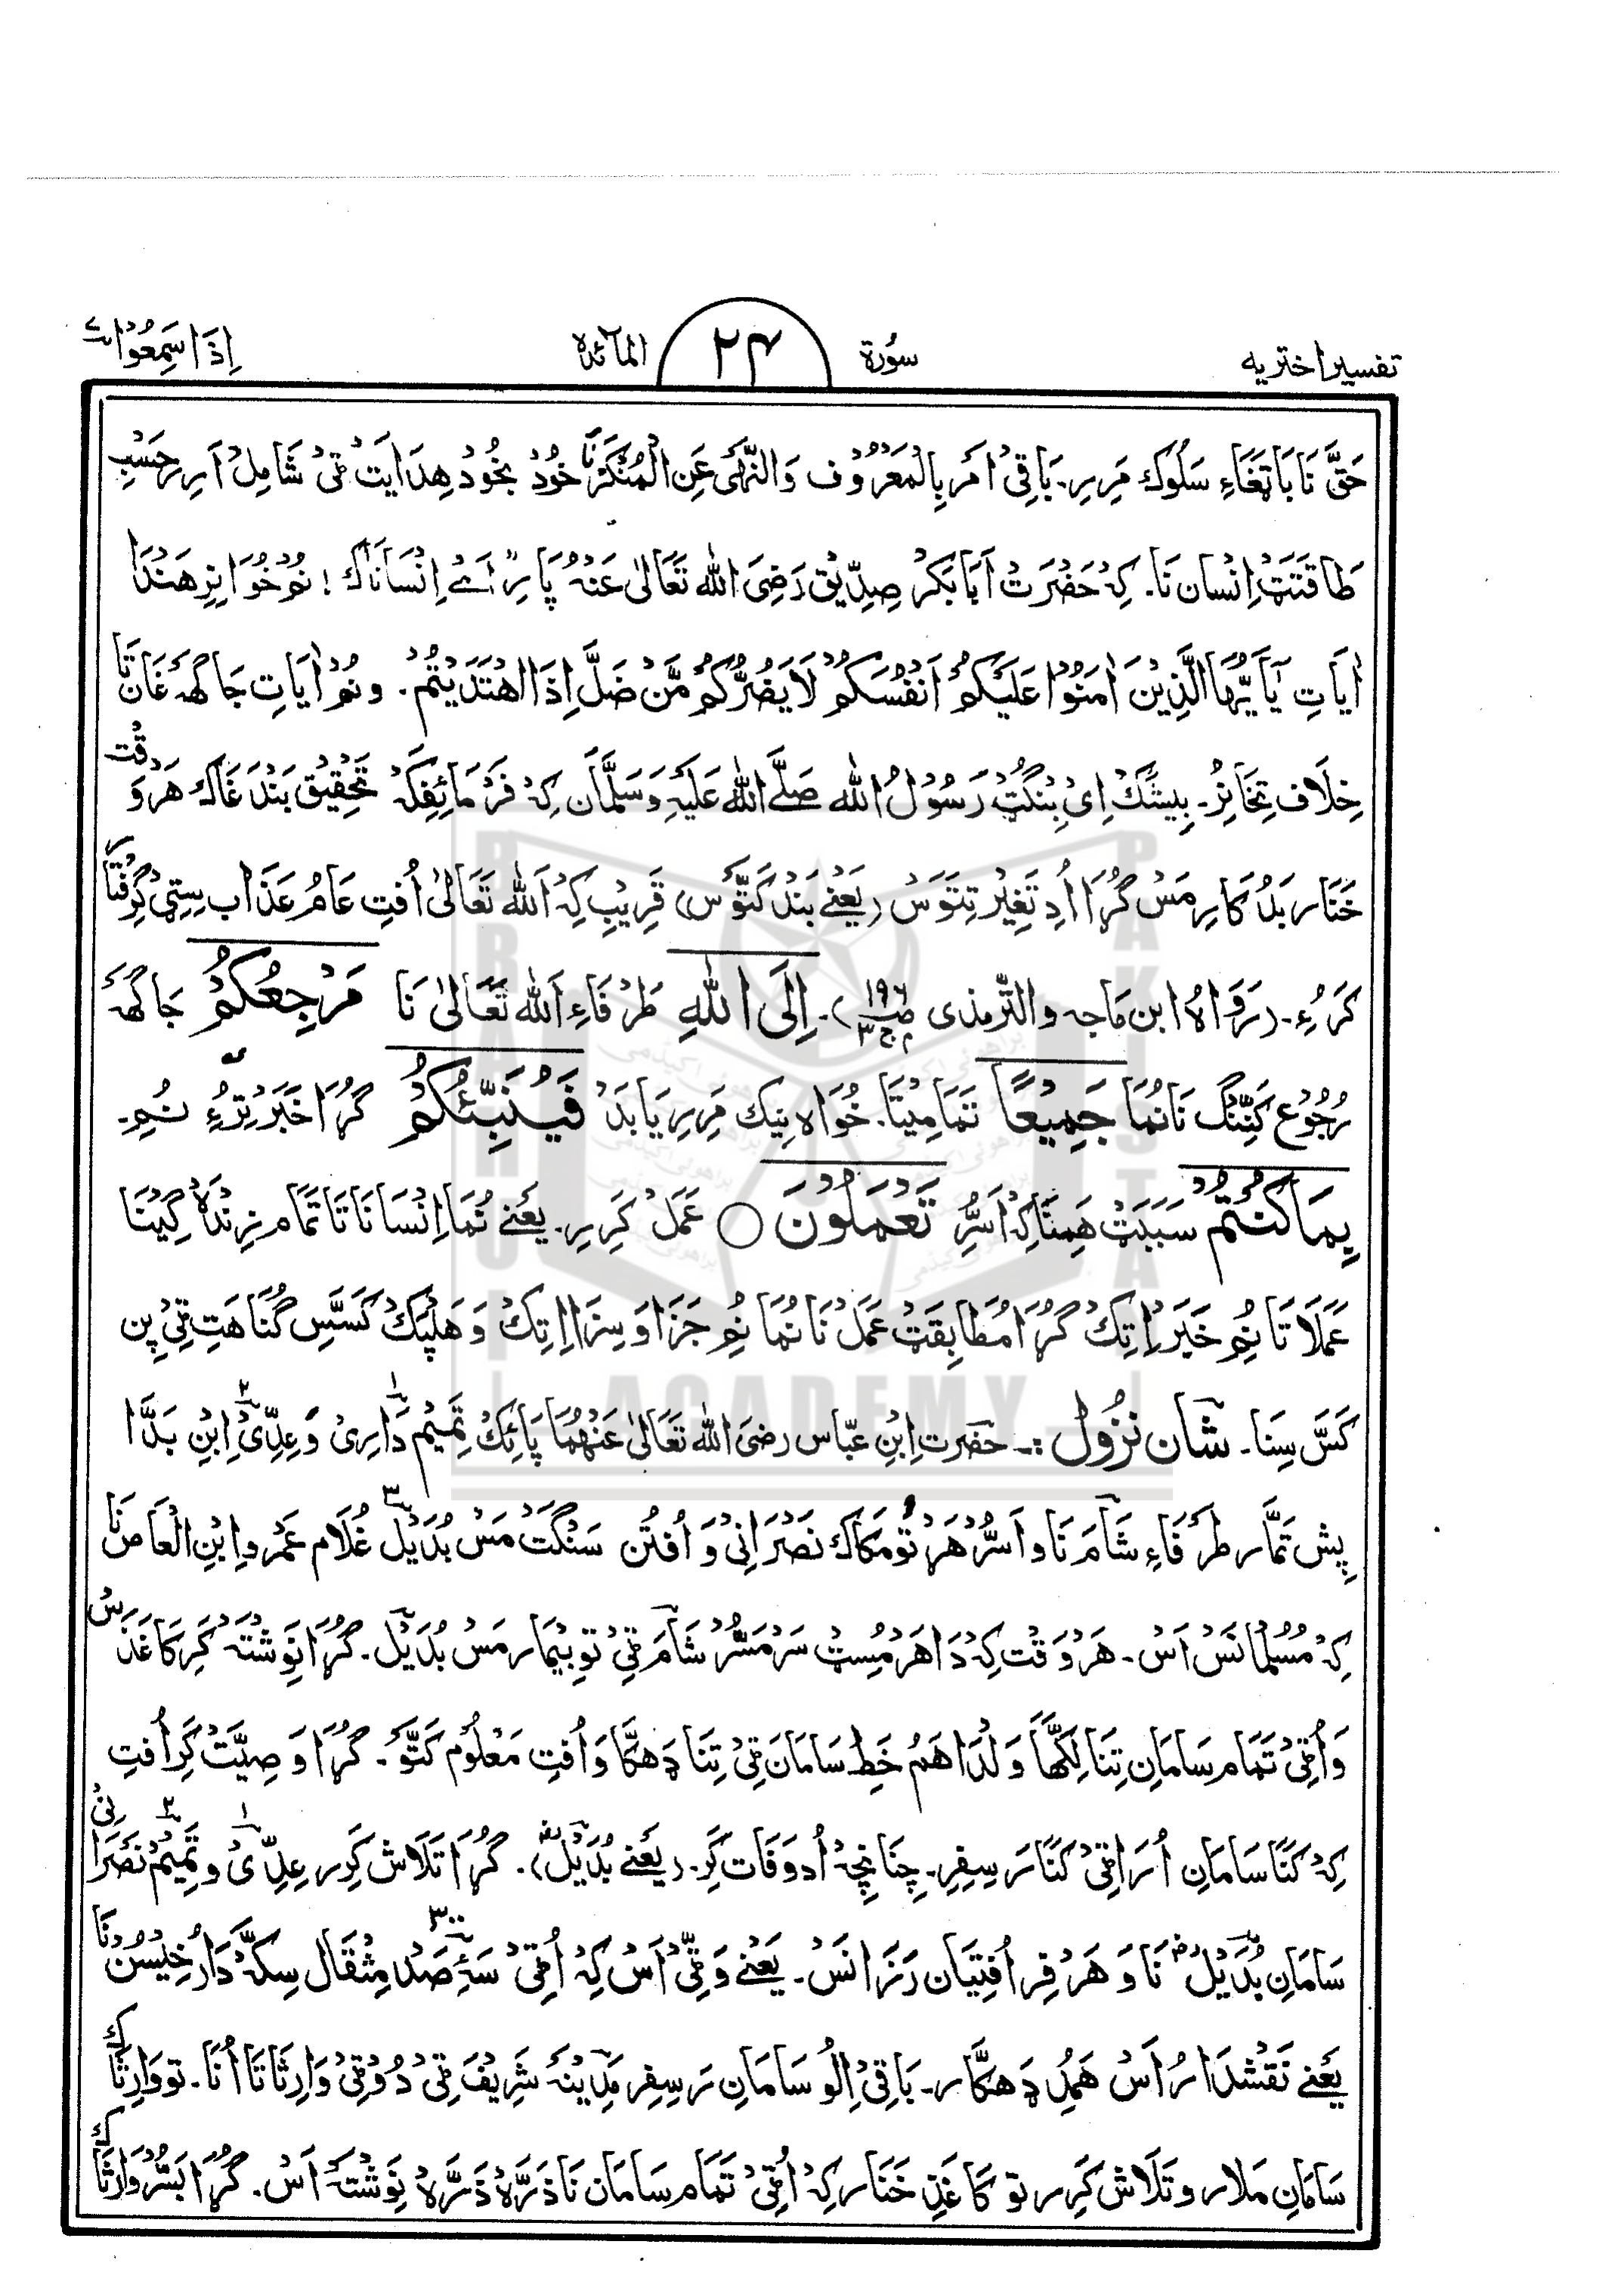 تفسیر اختریه سُورَة ۲۴ المآئدہ اِذَا سَمِعُوْا ۷
حَقَّ نَا بَاتِغَاءِ سَلُوک مَرِیرِ۔ بَاقِیْ اَمَر بِالْمَعَرُوْف وَالنَّهٰی عَنِ الْمُنْکَرْنَا خُوْد بَخُوْد هِدَایَتْ ٹِیْ شَامِلْ اَرِرحَسْبِ
طَاقَتَتْ اِنْسَان نَا۔ کِہْ حَضْرَتْ اَبَابَکَرْ صِدِّیْق رَضِیَ اللّٰہ تَعَالٰی عَنْہُ پَارِ "اَے اِنْسَانَاکْ! نُمْ خُوَانِرِ هَنْدَا
اٰیَاتِ یٰٓاَیُّهَا الَّذِیْنَ اٰمَنُوْا عَلَیْکُمْ اَنْفُسَکُمْ لَا یَضُرُّکُمْ مَّنْ ضَلَّ اِذَا اهْتَدَیْتُمْ۔ و نُمْ اٰیَاتِ جَاگَهہ غَان تَا
خِلَاف تِخَانِرْ۔ بِیشَکْ اِیْ بِنْگُٹ رَسُوْلُ اللّٰہ صَلَّے اللّٰہ عَلَیْہِ وَسَلَّمَان کِہْ فَرْمَائِفِکَہْ تَحْقِیْق بَنْدَغَاک هَرْوَقْت
خَنَار بَدُ کَارِ مَسْ گُڑَا اُدِ تَغِیْر تِتَوَسْ (یَعْنے بَنْد کَتَّوْس) قَرِیْب کِہْ اَللّٰہ تَعَالٰی اُفتِ عَامُ عَذَاب سِتِیْ گِرِفْتَار
کَرْءِ۔ (رَوَاہُ ابن مَاجہ والتّرمذی ص ۱۹۶ ج ۳)۔ اِلَی اللّٰهِ طَرْفَاءِ اَللّٰہ تَعَالٰی نَا مَرْجِعُکُمْ جَاگَہْ
رُجُوْع کَنِّنْگ نَا نُمَا جَمِیْعًا تَمَامِیْتَا۔ خُوَاہ نِیک مَرِیرِ یَا بَدْ فَیُنَبِّئُکُمْ گُڑَا خَبَرْ تِرْءِ نُمِ۔
بِمَا کُنْتُمْ سَبَبَتْ هَمِنَا کِہْ اَسُّرِ تَعْمَلُوْنَ ○ عَمَل کَرِیرِ۔ یَعْنے نُمَا اِنْسَانَا تَا تَمَام زِنْدَہْ گِیْنَا
عَمَلَا تَا نُمِ خَبَر اِتِکْ گُڑَا مُطَابِقَتْ عَمَلْ نَا نُمَا نُمِ جَزَا وَ سِزَا اِتِکْ وَ هَلِپَکْ کَسَّسِ گُنَاهَتِ ٹِیْ پِن
کَسَّ سِنَا۔ شَان نُزُول :۔ حَضرت اِبْنِ عبّاس رضی اللّٰہ تَعَالٰی عَنْهُمَا پَائِکْ تَمِیْم دَارِیْ وَ عِدِّیْ اِبْنِ بَدَّا
پِیش تَمَّار طَرْفَاءِ شَام نَا و اَسُّر هَرْ تُومَکَاک نَصْرَانِیْ وَ اُفتُن سَنْگَتْ مَسْ بُدَیْل غُلَام عَمْرو اِبْنِ الْعَاص نَا
کِہْ مُسُلْمانَسْ اَسْ۔ هَرْوَقْت کِہْ دَا هَرْمُسِٹ سَرْ مَسُّر شَام ٹِیْ تو بِیْمَار مَسْ بُدَیْل۔ گُڑَا نَوِشْتَہ کَرِ کَاغَذَسْ
وَ اُٹِیْ تَمَام سَامَانِ تِنَا لِکِّهَا وَلْدَا هَمُ خَطِ سَامَان ٹِیْ تِنَا دَهکَّا وَ اُفتِ مَعْلُوْم کَتَّوْ۔ گُڑَا وَصِیَّتْ کَرِ اُفتِ
کِہْ کَنَّا سَامَانِ اُرَاٹِیْ کَنَّا رَسِیفِرِ۔ چِنَانچِہْ اُدْ وَفَات کَرِ۔ (یَعْنے بُدَیْل)۔ گُڑَا تَلَاش کَرِر عِدِّیْ و تَمِیْم نَصْرَانِیْ
سَامَانِ بُدَیْل نَا وَ هَرْفِر اُفتِیَان دَزَانَسْ۔ یَعْنے وَٹِیْ اَسْ کِہْ اُٹِیْ سَہْ صَدْ ۳۰۰ مِثْقَال سِکَّہْ دَار خِیْسُن نَا
یَعْنے نَقْشْدَار اُسْ هَمُدِ دَهکَّار۔ بَاقِیْ اِلُو سَامَانِ رَسِیفِر مَدِیْنَہ شَرِیف ٹِیْ دُوٹِیْ وَارِثَا تَا اُنَا۔ تو وَارِثَاکْ
سَامَانِ مَلار و تَلَاش کَرِر تو کَاغَذِ خَنَار کِہْ اُٹِیْ تَمَام سَامَان نَا ذَرَّہْ ذَرَّہْ نَوِشْتَہ اَسْ۔ گُڑَا بَسُّر وَارِثَاکْ